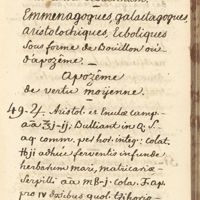 Emmenagogues, galactagogues,
aristolochiques, Ecboliques
Sous forme de Bouillon ou
d'apozême.
Apozême
de vertu moijenne.
49. ℞. Aristol. et Enulæ camp.
aa ʒj-ij; Bulliant in Q. S.
aq comm. per hor: integ: colat.
℔ij adhuc ferventis infunde
herbarum mari, matricaria
Serpilli aa m ß-j. cola. F. ap
pro IV dosibus quol.